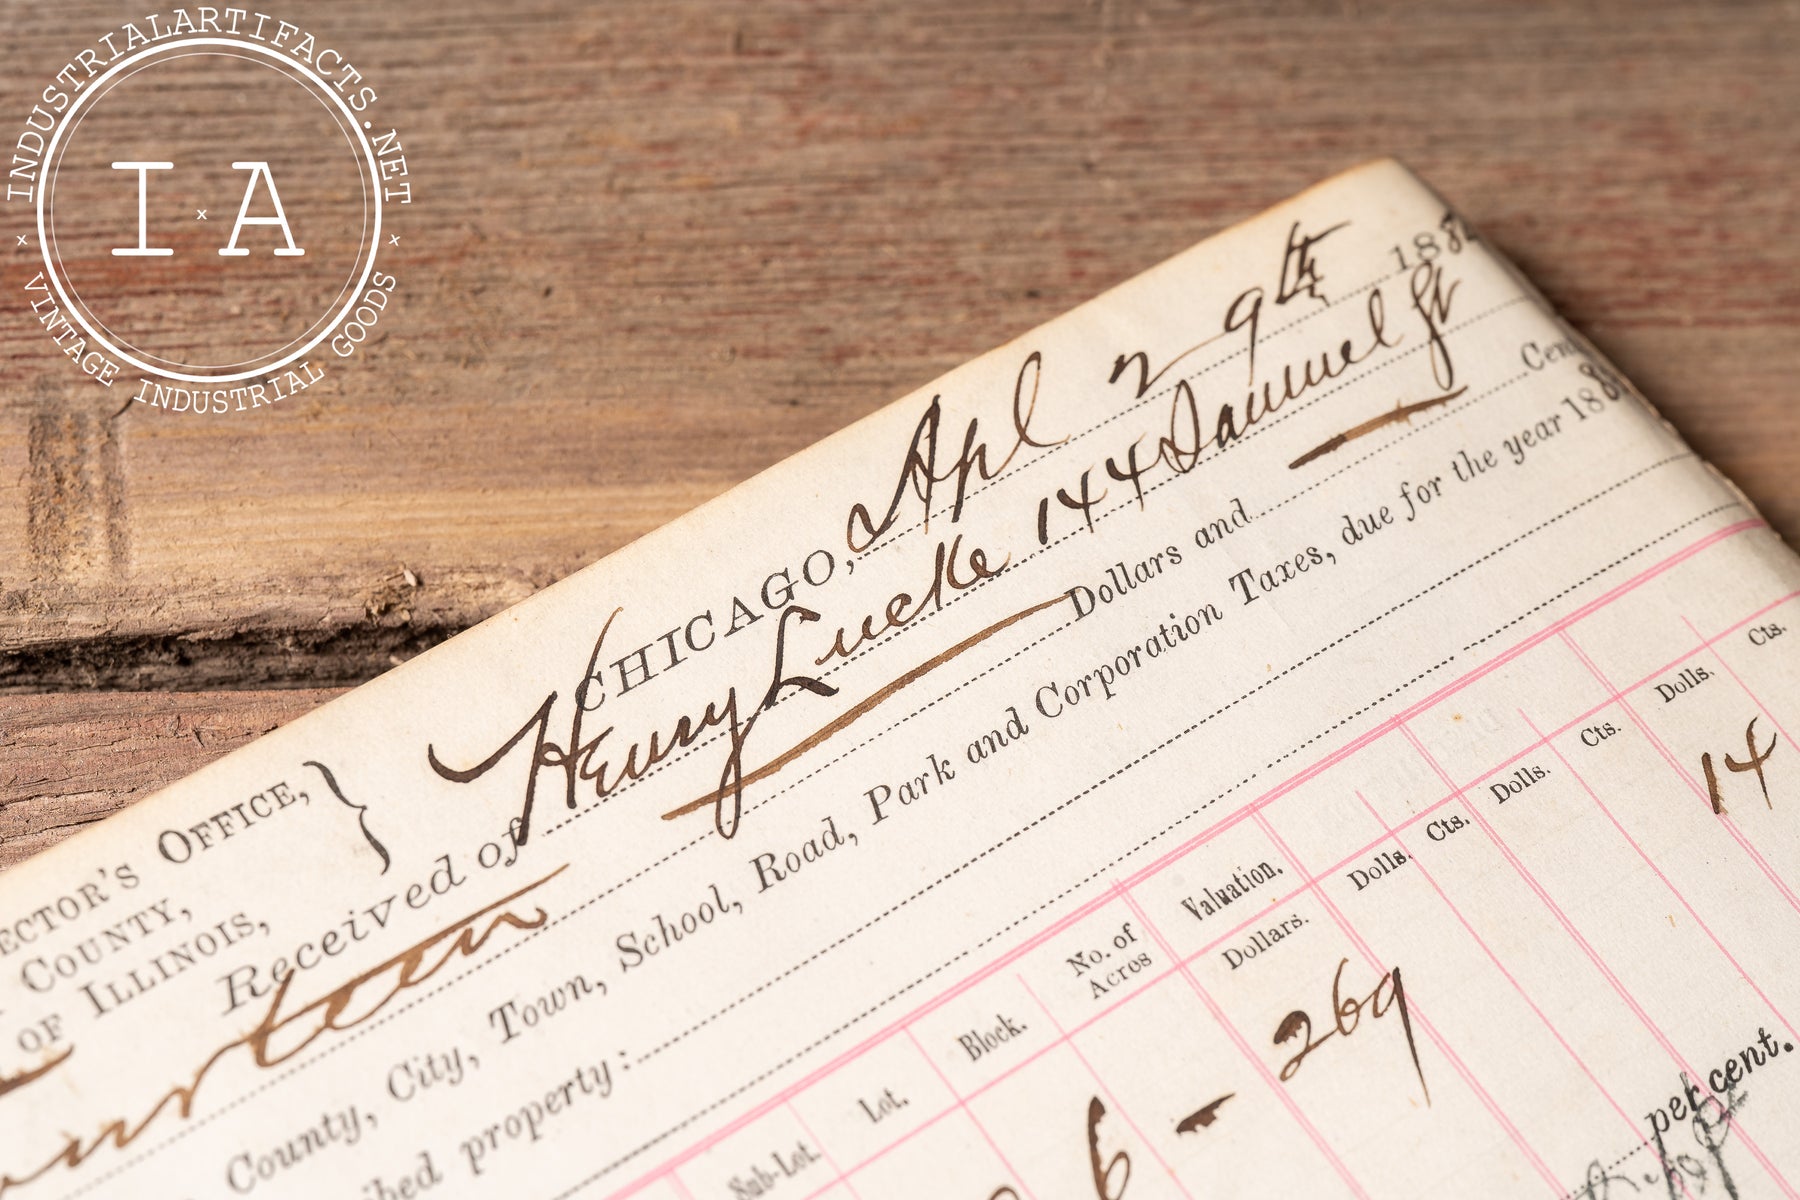 INDUSTRIALARTIFACTS.NET
I x A
VINTAGE INDUSTRIAL GOODS
CHICAGO, Apl 29th 188
ECTOR'S OFFICE, }
COUNTY,
OF ILLINOIS,
Received of Henry Lucke 144 Samuel St
urteen Dollars and Cen
County, City, Town, School, Road, Park and Corporation Taxes, due for the year 188
ibed property:
Sub-Lot. Lot. Block. No. of Acres Valuation. Dollars. Dolls. Cts. Dolls. Cts. Dolls. Cts.
6 - 269 14
per cent.